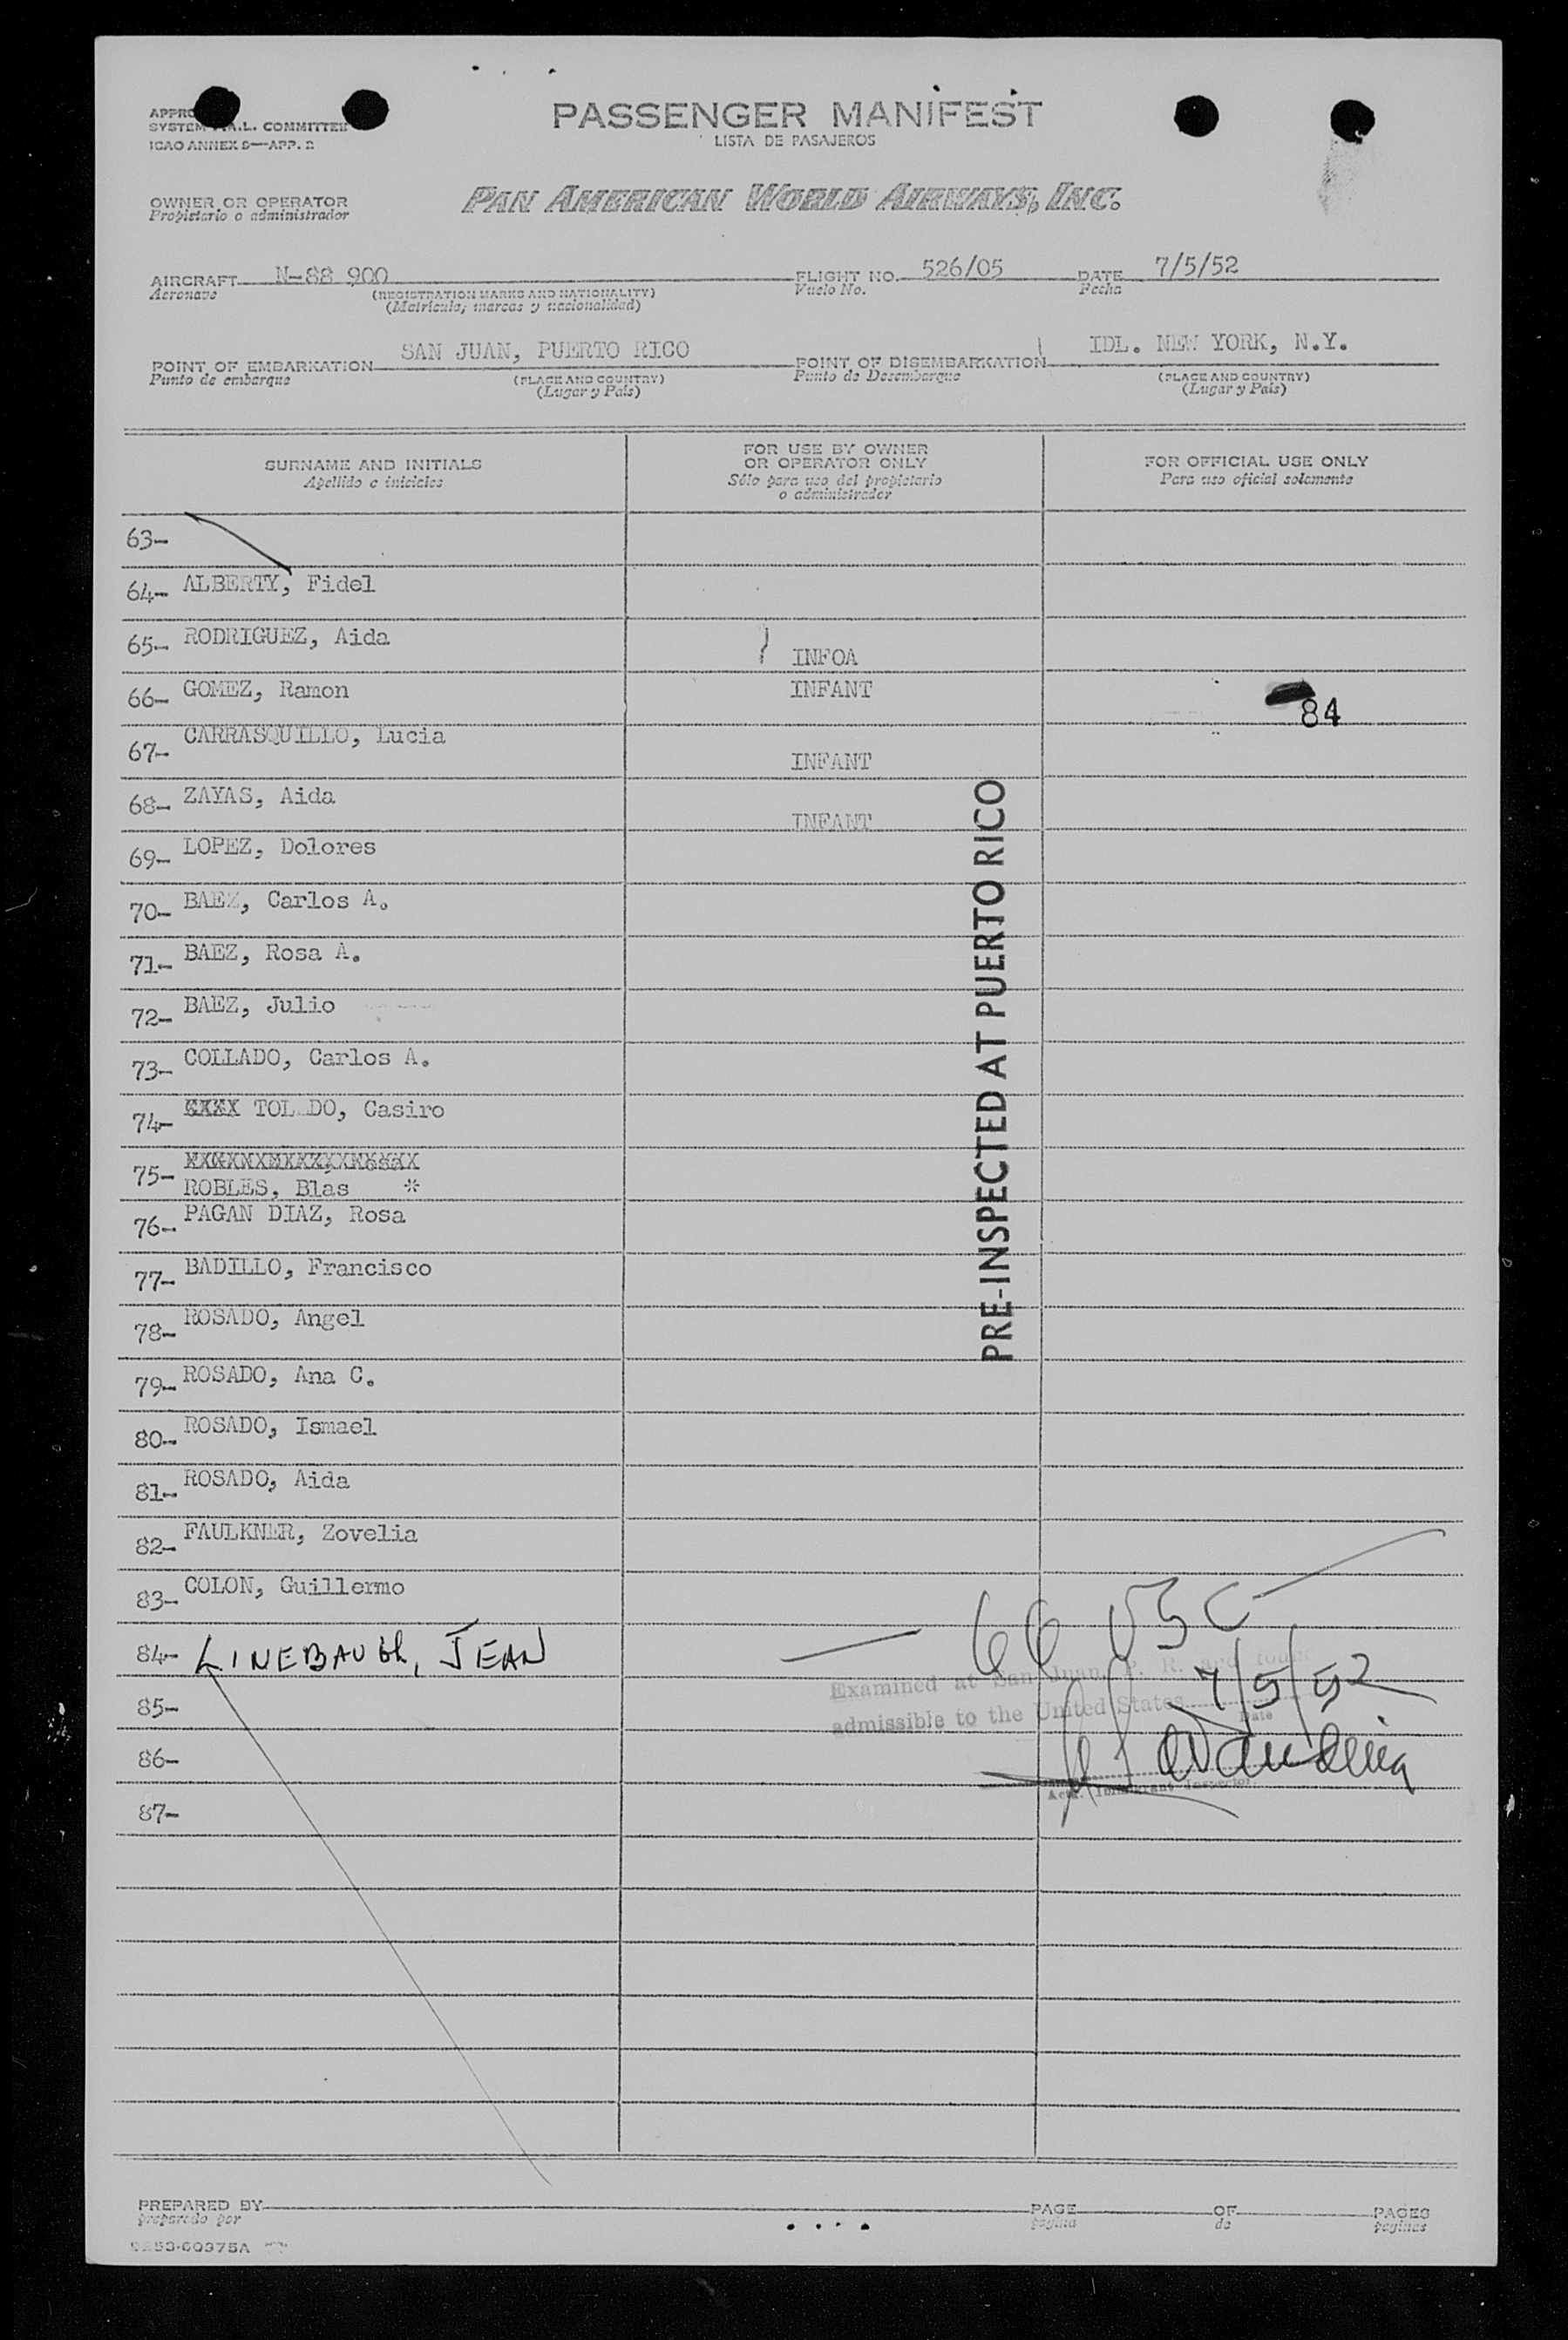 PASSENGER MANIFEST
LISTA DE PASAJEROS
SYSTEM COMMITTEE
ICAO ANNEX 9—APP. 2
OWNER OR OPERATOR
Propietario o administrador
PAN AMERICAN WORLD AIRWAYS, INC.
AIRCRAFT N-88 900 FLIGHT NO. 526/05 DATE 7/5/52
Aeronave (REGISTRATION MARKS AND NATIONALITY) Vuelo No. Fecha
(Matricula, marcas y nacionalidad)
POINT OF EMBARKATION SAN JUAN, PUERTO RICO POINT OF DISEMBARKATION IDL. NEW YORK, N.Y.
Punto de embarque (PLACE AND COUNTRY) Punto de Desembarque (PLACE AND COUNTRY)
(Lugar y País) (Lugar y País)
SURNAME AND INITIALS
Apellido e iniciales
FOR USE BY OWNER
OR OPERATOR ONLY
Sólo para uso del propietario
o administrador
FOR OFFICIAL USE ONLY
Para uso oficial solamente
63-
64- ALBERTY, Fidel
65- RODRIGUEZ, Aida INFOA
66- GOMEZ, Ramon INFANT 84
67- CARRASQUILLO, Lucia INFANT
68- ZAYAS, Aida INFANT
69- LOPEZ, Dolores
70- BAEZ, Carlos A.
71- BAEZ, Rosa A.
72- BAEZ, Julio
73- COLLADO, Carlos A.
74- TOL DO, Casiro
75- ROBLES, Blas *
76- PAGAN DIAZ, Rosa
77- BADILLO, Francisco
78- ROSADO, Angel
79- ROSADO, Ana C.
80- ROSADO, Ismael
81- ROSADO, Aida
82- FAULKNER, Zovelia
83- COLON, Guillermo
84- LINEBAUGH, JEAN
85-
86-
87-
PRE-INSPECTED AT PUERTO RICO
66 USC
Examined at San Juan, P. R. and found
admissible to the United States 7/5/52
Date
Immigrant Inspector.
PREPARED BY PAGE OF PAGES
preparado por página de páginas